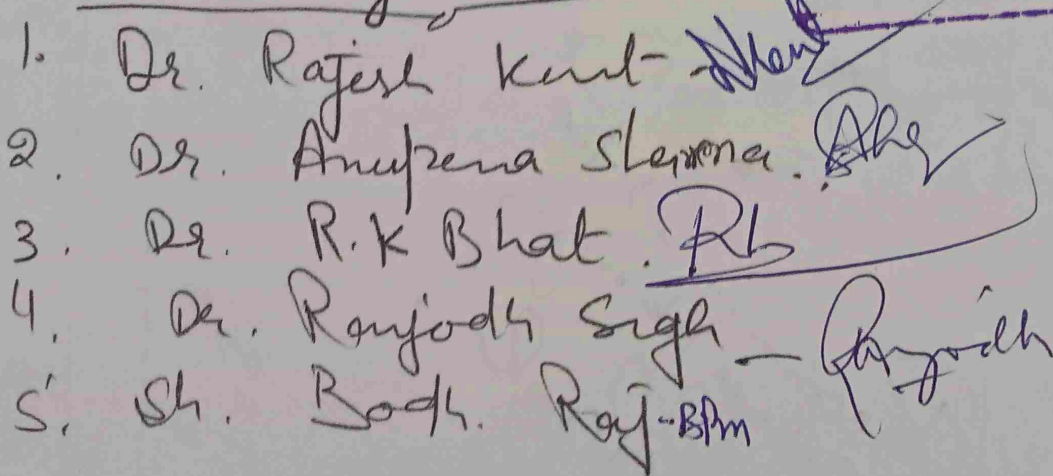 1. Dr. Rajesh Kant -
2. Dr. Anupama Sharma.
3. Dr. R.K Bhat. Rb
4. Dr. Ranjodh Sigh - Ranjodh
5. Sh. Bodh. Raj-BPm